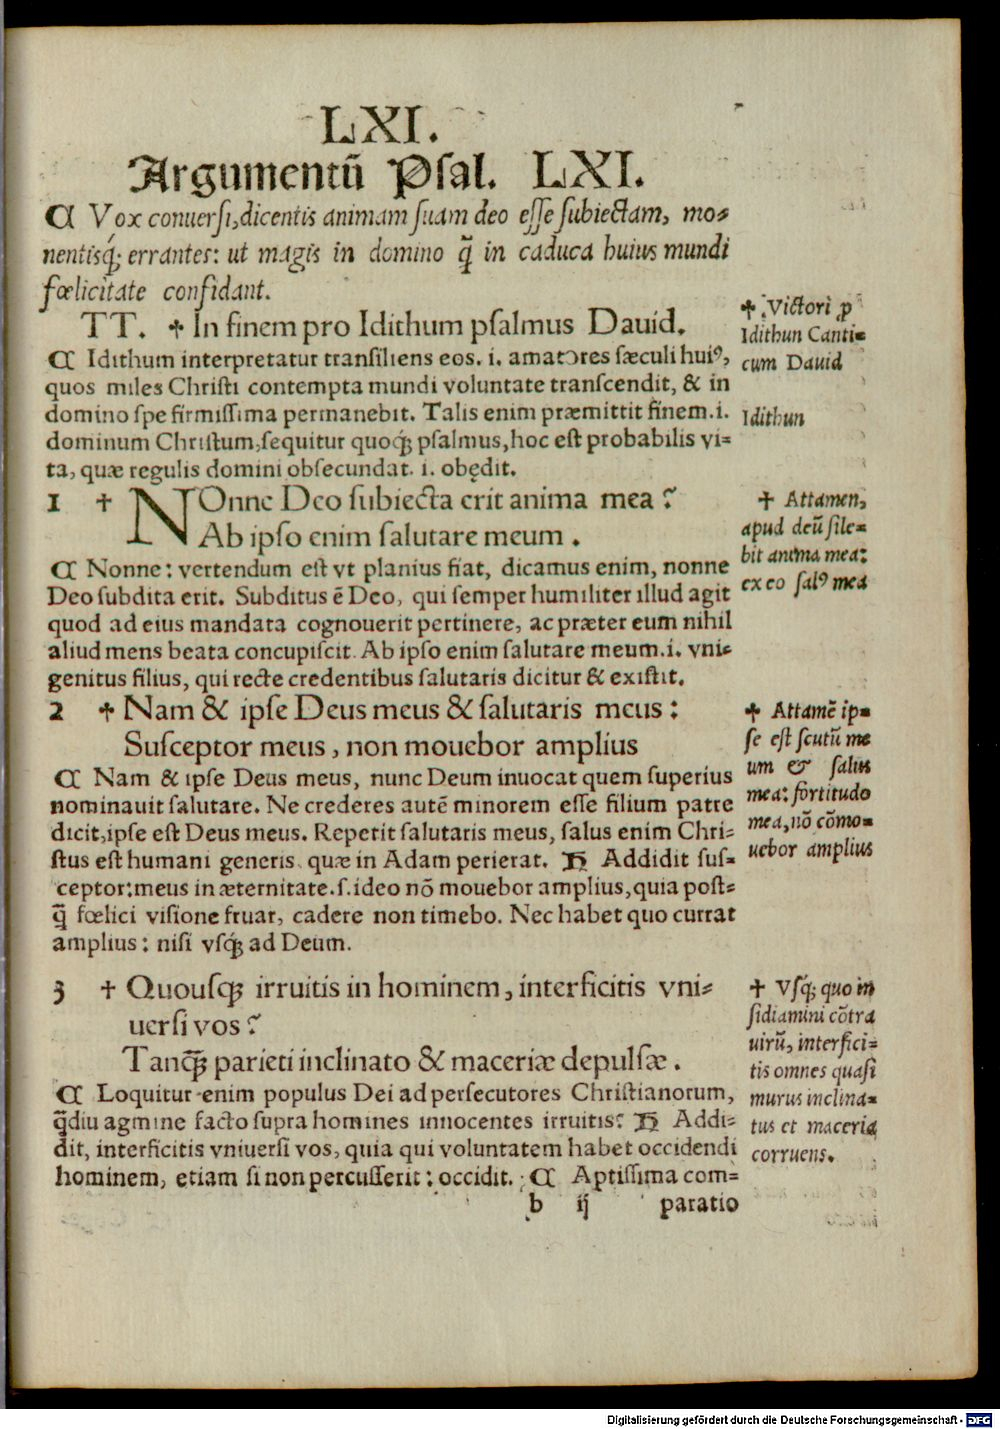 LXI.
Argumentū Psal. LXI.
¶ Vox conuersi, dicentis animam suam deo esse subiectam, mo⸗
nentisq́; errantes: ut magis in domino q̃ in caduca huius mundi
fœlicitate confidant.
TT. ✝ In finem pro Idithum psalmus Dauid.
¶ Idithum interpretatur transiliens eos. i. amatores sæculi huiꝰ,
quos miles Christi contempta mundi voluntate transcendit, & in
domino spe firmissima permanebit. Talis enim præmittit finem. i.
dominum Christum, sequitur quoq; psalmus, hoc est probabilis vi⸗
ta, quæ regulis domini obsecundat. i. obędit.
1 ✝ NOnne Deo subiecta erit anima mea?
Ab ipso enim salutare meum.
¶ Nonne: vertendum est vt planius fiat, dicamus enim, nonne
Deo subdita erit. Subditus ē Deo, qui semper humiliter illud agit
quod ad eius mandata cognouerit pertinere, ac præter eum nihil
aliud mens beata concupiscit. Ab ipso enim salutare meum. i. vni⸗
genitus filius, qui recte credentibus salutaris dicitur & existit.
2 ✝ Nam & ipse Deus meus & salutaris meus:
Susceptor meus, non mouebor amplius
¶ Nam & ipse Deus meus, nunc Deum inuocat quem superius
nominauit salutare. Ne crederes autē minorem esse filium patre
dicit, ipse est Deus meus. Repetit salutaris meus, salus enim Chri⸗
stus est humani generis quæ in Adam perierat. H Addidit sus⸗
ceptor: meus in æternitate. s. ideo nō mouebor amplius, quia post⸗
q̃ fœlici visione fruar, cadere non timebo. Nec habet quo currat
amplius: nisi vsq; ad Deum.
3 ✝ Quousq; irruitis in hominem, interficitis vni⸗
uersi vos?
Tanq̃; parieti inclinato & maceriæ depulsæ.
¶ Loquitur enim populus Dei ad persecutores Christianorum,
q̃diu agmine facto supra homines innocentes irruitis? H Addi⸗
dit, interficitis vniuersi vos, quia qui voluntatem habet occidendi
hominem, etiam si non percusserit: occidit. ¶ Aptissima com⸗
b ij paratio
✝ Victori ꝓ
Idithun Canti⸗
cum Dauid
Idithun
✝ Attamen,
apud deū sile⸗
bit anima mea:
ex eo salꝰ mea
✝ Attamē ip⸗
se est scutū me
um & salus
mea: fortitudo
mea, nō cōmo⸗
uebor amplius
✝ Vsq́; quo in
sidiamini cōtra
uirū, interfici⸗
tis omnes quasi
murus inclina⸗
tus et maceria
corruens.
Digitalisierung gefördert durch die Deutsche Forschungsgemeinschaft - DFG